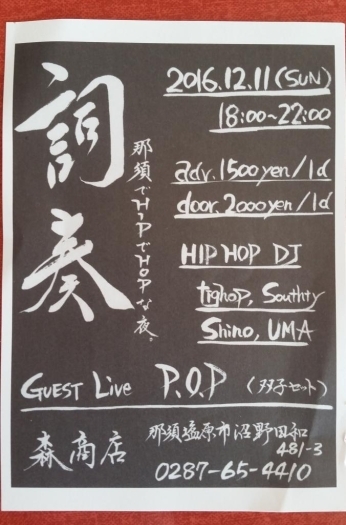 詞奏
那須でHIPでHOPな夜。
2016.12.11(SUN)
18:00~22:00
adv.1500yen/1d
door.2000yen/1d
HIP HOP DJ
tighop, Southty
Shino, UMA
GUEST Live P.O.P (双子セット)
森商店
那須塩原市沼野田和
481-3
0287-65-4410